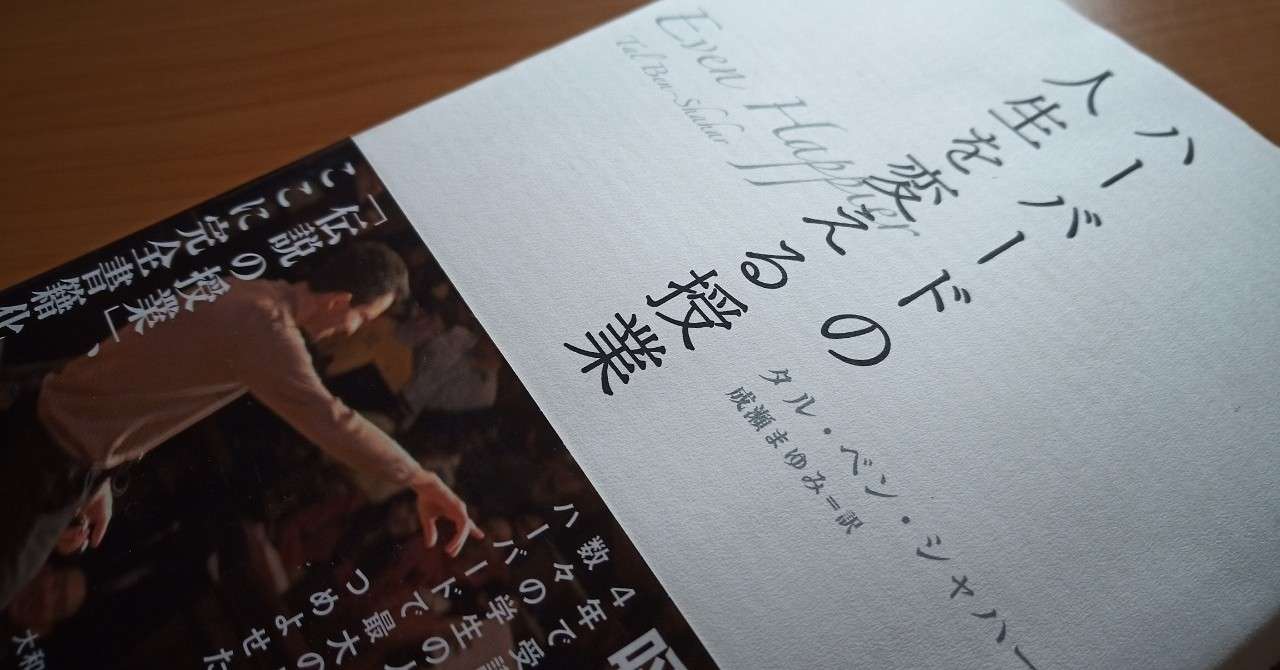 ハーバードの
人生を変える
授業
Even Happier
Tal Ben-Shahar
タル・ベン・シャハー
成瀬まゆみ=訳
「伝説の授業」、
ここに完全書籍化
4年で受
数々の学生の
ハーバードで最大の
つめよせた
大和